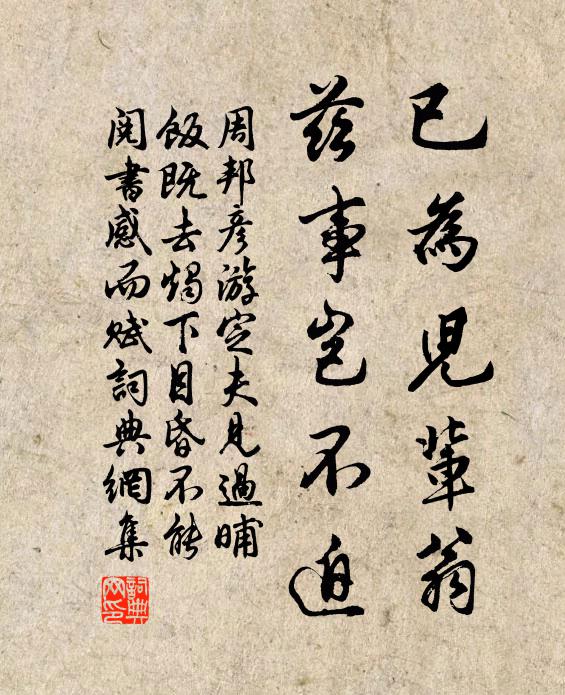 已為兒輩翁
茲事豈不迫
周邦彥游定夫見過晡
飯既去燭下目昏不能
閱書感而賦詞典網集
詞典网印